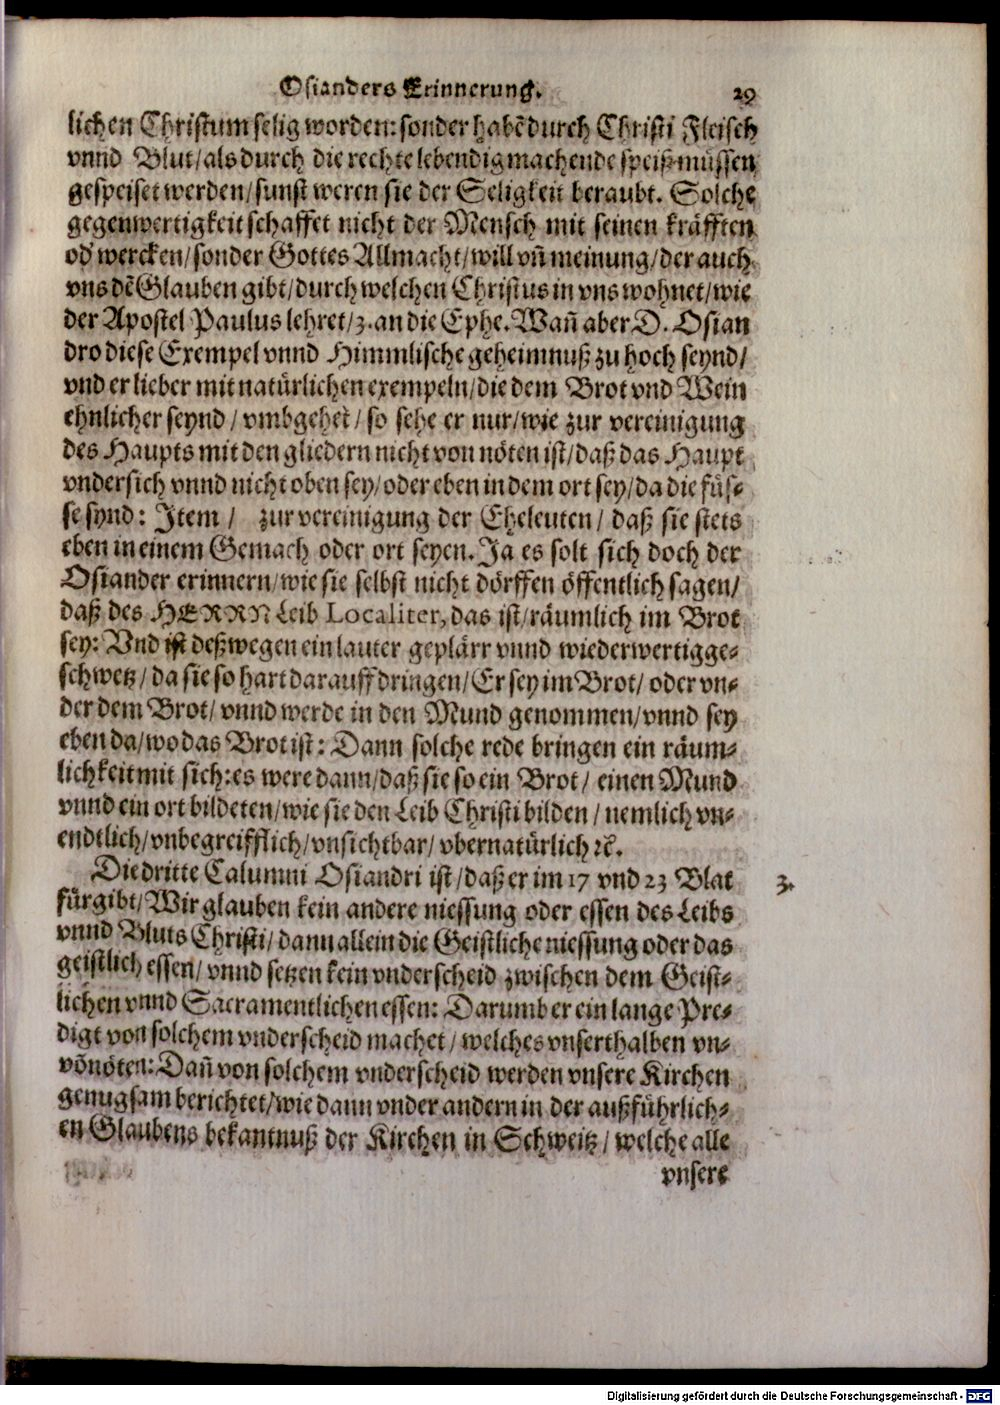 Osianders Erinnerung. 29
lichen Christum selig worden: sonder habē durch Christi Fleisch
vnnd Blut/als durch die rechte lebendigmachende speiß müssen
gespeiset werden/sunst weren sie der Seligkeit beraubt. Solche
gegenwertigkeit schaffet nicht der Mensch mit seinen kräfften
od' wercken/sonder Gottes Allmacht/will vñ meinung/der auch
vns dē Glauben gibt/durch welchen Christus in vns wohnet/wie
der Apostel Paulus lehret/3. an die Ephe. Wañ aber D. Osian
dro diese Exempel vnnd Himmlische geheimnuß zu hoch seynd/
vnd er lieber mit natürlichen exempeln/die dem Brot vnd Wein
ehnlicher seynd / vmbgehet / so sehe er nur/wie zur vereinigung
des Haupts mit den gliedern nicht von nöten ist/daß das Haupt
vndersich vnnd nicht oben sey/oder eben in dem ort sey/da die füs-
se synd: Item / zur vereinigung der Eheleuten / daß sie stets
eben in einem Gemach oder ort seyen. Ja es solt sich doch der
Osiander erinnern/wie sie selbst nicht dörffen öffentlich sagen/
daß des HERRN Leib Localiter, das ist/räumlich im Brot
sey: Vnd ist deßwegen ein lauter geplärr vnnd wiederwertigge-
schwetz / da sie so hart darauff dringen/Er sey im Brot/ oder vn-
der dem Brot/ vnnd werde in den Mund genommen/vnnd sey
eben da/wo das Brot ist: Dann solche rede bringen ein räum-
lichkeit mit sich: es were dann/daß sie so ein Brot / einen Mund
vnnd ein ort bildeten/wie sie den Leib Christi bilden / nemlich vn-
endtlich/vnbegreifflich/vnsichtbar/ vbernatürlich ꝛc̄.
Die dritte Calumni Osiandri ist/daß er im 17 vnd 23 Blat 3.
fürgibt/Wir glauben kein andere niessung oder essen des Leibs
vnnd Bluts Christi/dann allein die Geistliche niessung oder das
geistlich essen/ vnnd setzen kein vnderscheid zwischen dem Geist-
lichen vnnd Sacramentlichen essen: Darumb er ein lange Pre-
digt von solchem vnderscheid machet / welches vnserthalben vn-
vōnöten: Dañ von solchem vnderscheid werden vnsere Kirchen
genugsam berichtet/wie dann vnder andern in der außführlich-
en Glaubens bekantnuß der Kirchen in Schweitz / welche alle
vnsere
Digitalisierung gefördert durch die Deutsche Forschungsgemeinschaft - DFG